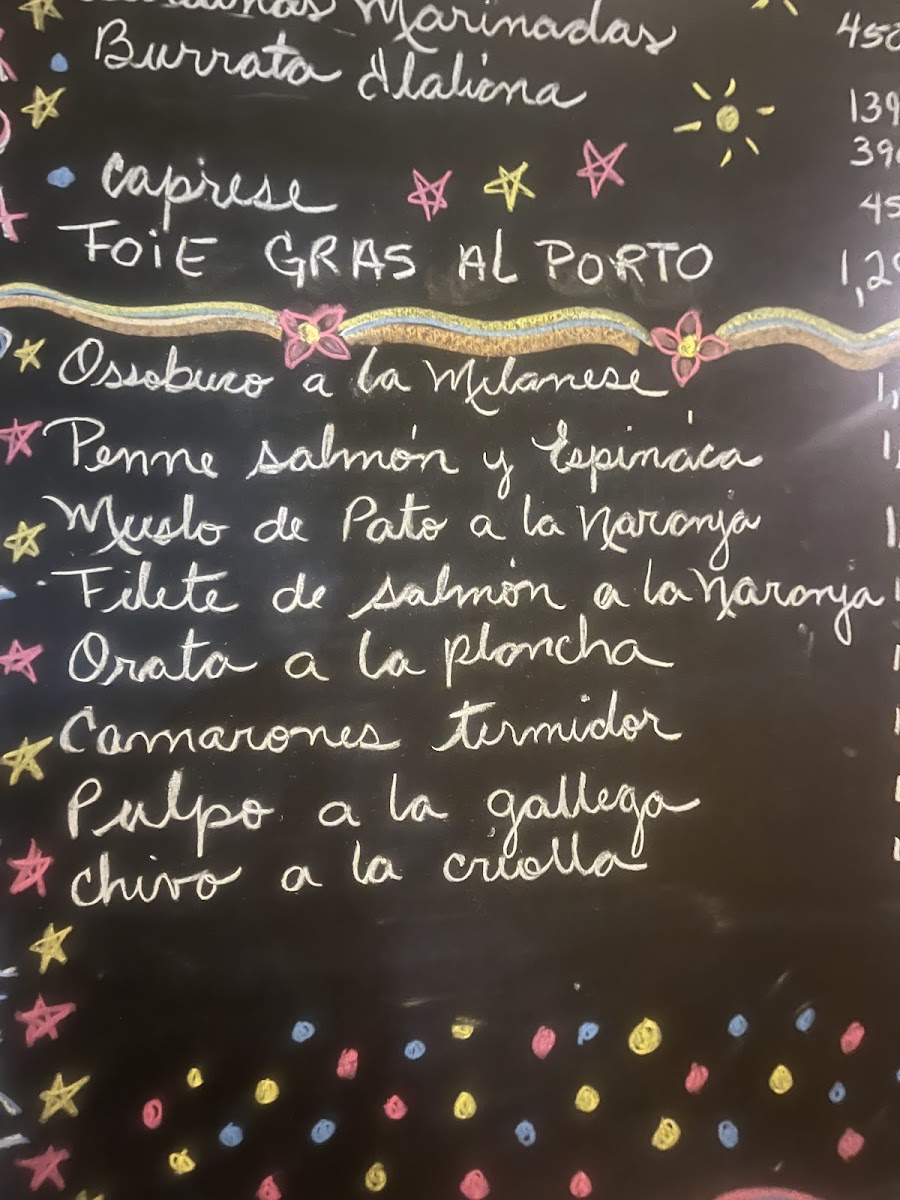 Marinadas
Burrata Italiana
Caprese
FOIE GRAS AL PORTO
Ossobuco a la Milanese
Penne salmón y Espináca
Muslo de Pato a la Naranja
Filete de salmón a la Naranja
Orata a la plancha
Camarones termidor
Pulpo a la gallega
Chivo a la criolla